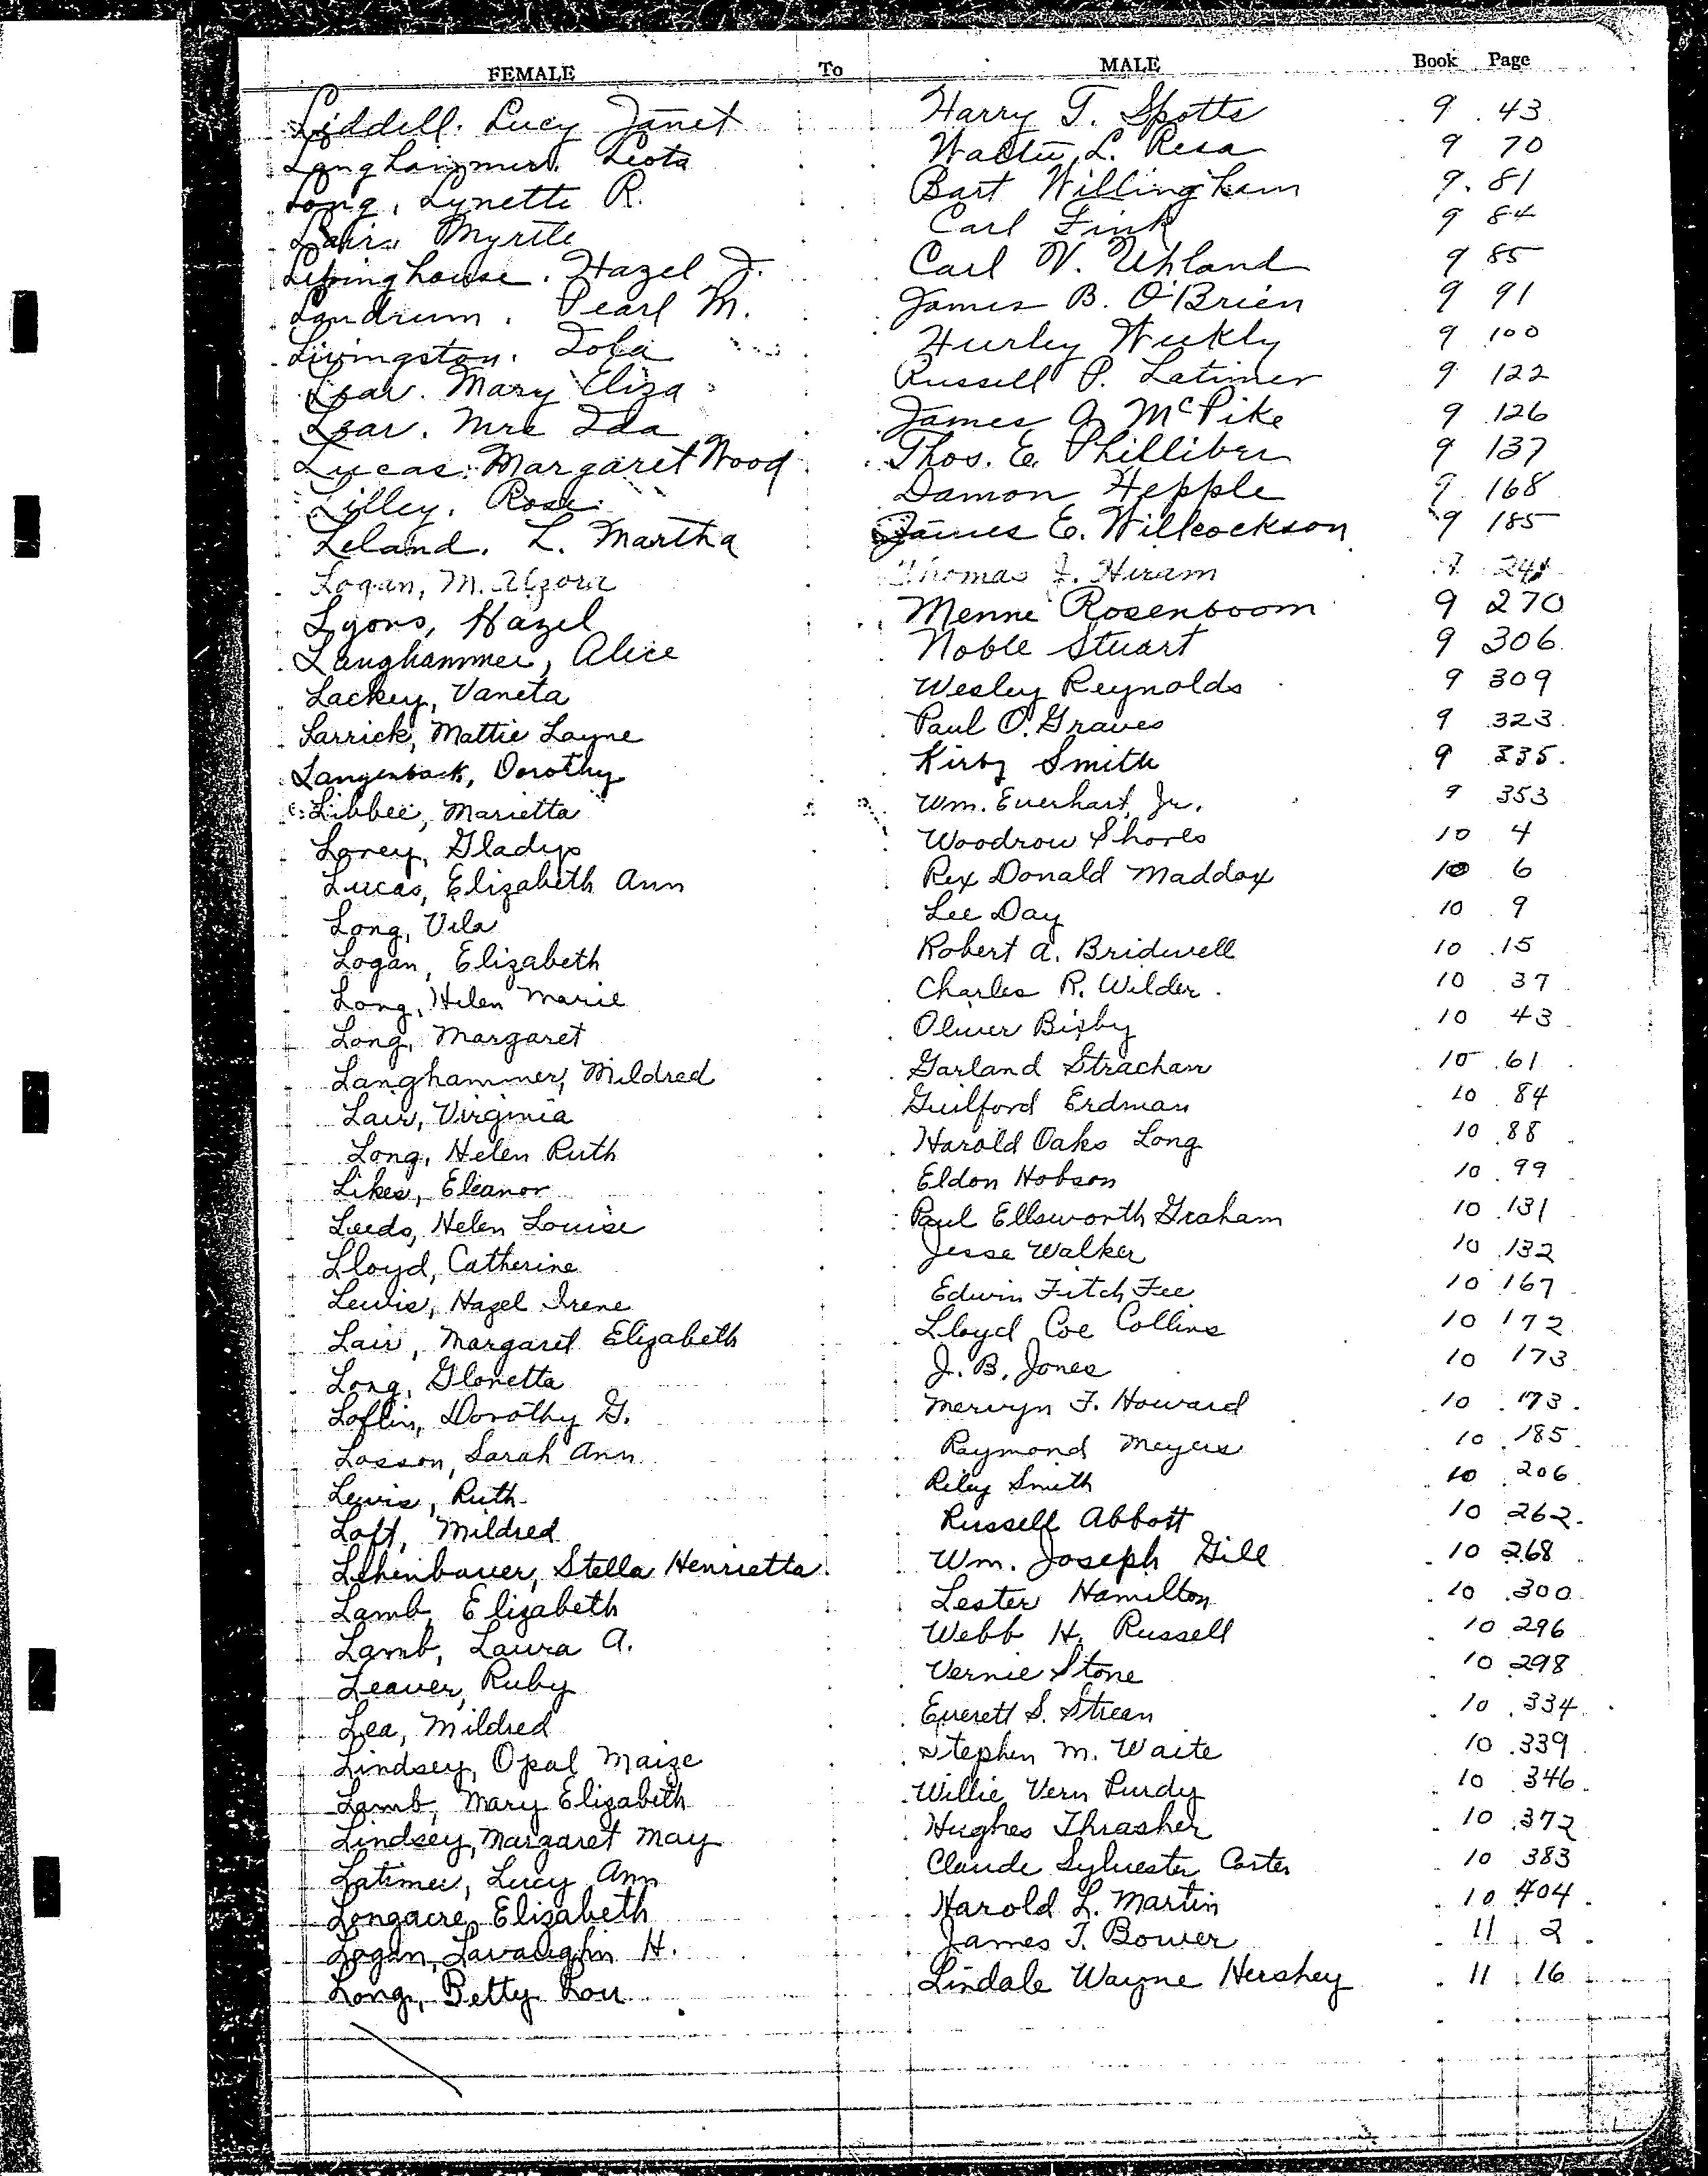 FEMALE To MALE Book Page
Liddell. Lucy Janet Harry T. Spotts 9 43
Langhammer. Leota Walter L. Resa 9 70
Long, Lynette R. Bart Willingham 9 81
Lair, Myrtle Carl Fink 9 84
Levinghouse. Hazel J. Carl V. Uhland 9 85
Landrum. Pearl M. James B. O'Brien 9 91
Livingston. Iola Hurley Weekly 9 100
Lear. Mary Eliza Russell P. Latimer 9 122
Lear. Mrs Ida James A McPike 9 126
Lucas. Margaret Wood Thos. E. Philliber 9 137
Lilley. Rose Damon Hepple 9 168
Leland. L. Martha James E. Willcockson 9 185
Logan, M. Thomas J. Hiram
Lyons, Hazel Menne Rosenboom 9 270
Langhammer, Alice Noble Stuart 9 306
Lackey, Vaneta Wesley Reynolds 9 309
Larrick, Mattie Layne Paul O. Graves 9 323
Langenback, Dorothy Kirby Smith 9 335
Libbee, Marietta Wm. Everhart, Jr. 9 353
Loney, Gladys Woodrow Shores 10 4
Lucas, Elizabeth Ann Rex Donald Maddox 10 6
Long, Vila Lee Day 10 9
Logan, Elizabeth Robert A. Bridwell 10 15
Long, Helen Marie Charles R. Wilder 10 37
Long, Margaret Oliver Bixby 10 43
Langhammer, Mildred Garland Strachan 10 61
Lair, Virginia Guilford Erdman 10 84
Long, Helen Ruth Harold Oaks Long 10 88
Likes, Eleanor Eldon Hobson 10 99
Leeds, Helen Louise Paul Ellsworth Graham 10 131
Lloyd, Catherine Jesse Walker 10 132
Lewis, Hazel Irene Edwin Fitch Fee 10 167
Lair, Margaret Elizabeth Lloyd Coe Collins 10 172
Long, Glonetta J. B. Jones 10 173
Loflin, Dorothy G. Mervyn F. Howard 10 173
Losson, Sarah Ann Raymond Meyers 10 185
Lewis, Ruth Riley Smith 10 206
Loft, Mildred Russell Abbott 10 262
Lehenbauer, Stella Henrietta Wm. Joseph Gill 10 268
Lamb, Elizabeth Lester Hamilton 10 300
Lamb, Laura A. Webb H. Russell 10 296
Leaver, Ruby Vernie Stone 10 298
Lea, Mildred Everett S. Streen 10 334
Lindsey, Opal Maize Stephen M. Waite 10 339
Lamb, Mary Elizabeth Willie Vern Purdy 10 346
Lindsey, Margaret May Hughes Thrasher 10 372
Latimer, Lucy Ann Claude Sylvester Carter 10 383
Longacre, Elizabeth Harold L. Martin 10 404
Logan, Lavaughn H. James T. Bower 11 2
Long, Betty Lou Lindale Wayne Hershey 11 16